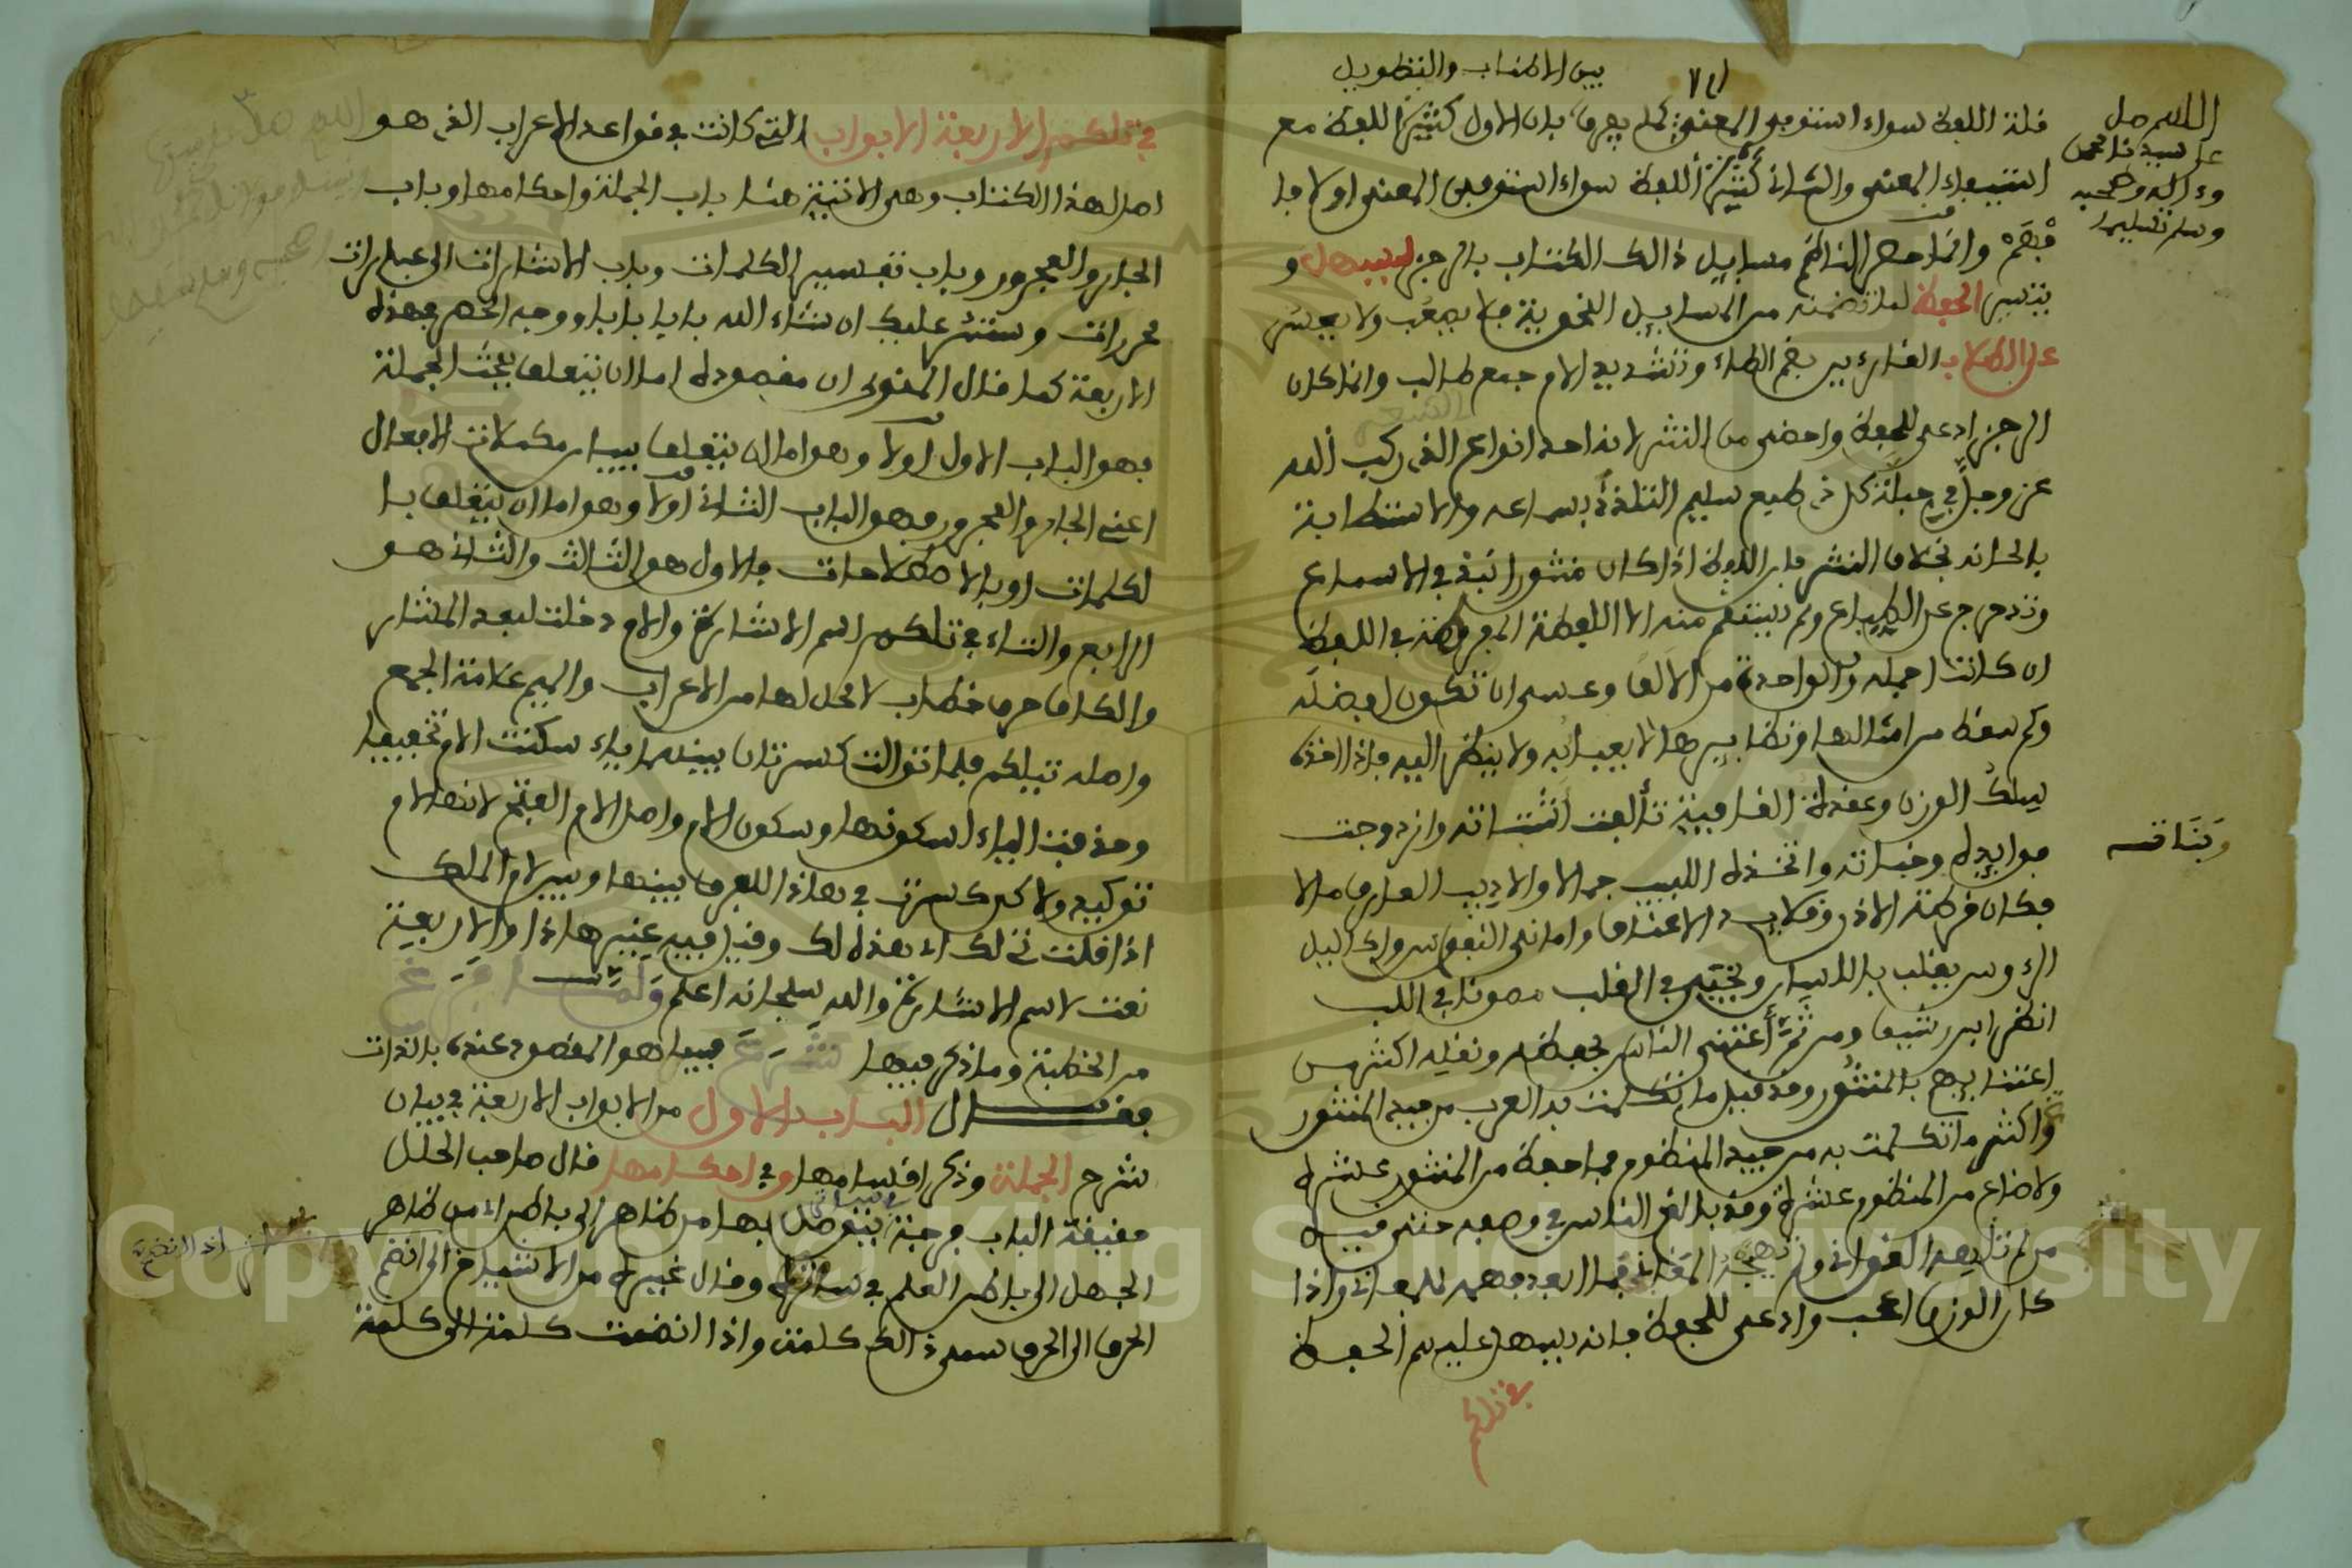 بين الاطناب والتطويل
قلة اللفظ سواء استوفى المعنى كما يعرف بان الاول كثير اللفظ مع
استيفاء المعنى والثاني كثير اللفظ سواء استوفى المعنى اولا فا
فهم وانما حصر الناظم مسايل ذالك الكتاب بالرجز ليسهل و
يتيسر الحفظ لما تضمنه من المسايل النحوية فلا يصعب ولا يعسر
على الطلاب القارءين بضم الطاء وتشديد الام جمع طالب وانما كان
الرجز ادعى للحفظ واحضى من النثر لانه احد انواع الذي ركب الله
عز وجل في جبلة كل ذي طبع سليم التلذذ بسماعه والاستطابة
بالحانه بخلاف النثر فان اللفظ اذا كان منثورا تبدد في الاسماع
وتدحرج عن الطباع ولم يستقم منه الا اللفظة المفروضة في اللفظ
ان كانت اجمله والواحدة من الالف وعسى ان تكون افضله
وكم سقط من امثالها ونظايرها لا يعبا به ولا ينظر اليه فاذا اخذه
سلك الوزن وعقدة القافية تألفت اشتاته وازدوجت
فوايده وبناته واتخذه اللبيب جمالا والاديب العارف مالا
فكان قرطة الاذن وقلايد الاعناق واماني النفوس واكاليل
الرءوس يقلب بالالسن ويخبى في القلب مصونا في اللب
انظر ابن رشيق ومن ثم أعتنى الناس بحفظه ونقله اكثر من
اعتنايهم بالمنثور وقد قيل ما تكلمت به العرب من جيد المنثور
واكثر ما تكلمت به من جيد المنظوم فما حفظ من المنثور عشره
ولا ضاع من المنظوم عشره وقد بالغ الناس في وصفه حتى قيل
من لم تنشده الغواني ولم تهجه المغاني فما ابعد فهمه للمعاني واذا
كان الوزن اعجب وادعى للحفظ فانه يسهل عليهم الحفظ
في تلكم
اللهم صل
على سيدنا محمد
وءاله وصحبه
وسلم تسليما
وبناته
في تلكم الاربعة الابواب التي كانت في قواعد الاعراب الذي هو
اصل لهذا الكتاب وهي الاتية هنا باب الجملة واحكامها وباب
الجار والمجرور وباب تفسير الكلمات وباب الاشارات الى عبارات
محررات وستمر عليك ان شاء الله بابا بابا ووجه الحصر في هذه
الاربعة كما قال المنوى ان مقصوده اما ان يتعلق ببحث الجملة
فهو الباب الاول اولا وهو اما ان يتعلق ببيان مكملات الافعال
اعني الجار والمجرور فهو الباب الثاني اولا وهو اما ان يتعلق با
لكلمات او بالاصطلاحات فالاول هو الثالث والثاني هو
الرابع والتاء في تلكم اسم الاشارة والام دخلت لبعد المشار
والكاف حرف خطاب لا محل لها من الاعراب والميم علامة الجمع
واصله تيلكم فلما توالت كسرتان بينهما ياء سكنت الام تخفيفا
وحذفت الياء لسكونها وسكون الام واصل الام الفتح لانها لام
توكيد ولاكن كسرت في هاذا اللفرق بينها وبين لام الملك
اذا قلت تى لك اى هذه لك وقيل فيه غير هاذا والاربعة
نعت لاسم الاشارة والله سبحانه اعلم ولمـا فرغ
من الخطبة وما ذكر فيها شرع فيما هو المقصود عنده بالذات
فقال الباب الاول من الابواب الاربعة في بيان
شرح الجملة وذكر اقسامها وفي احكامها قال صاحب الحلل
حقيقة الباب فرجة يتوصل بها من ظاهر الى باطن اى من ظاهر
الجهل الى باطن العلم في وقال غيره من الاشياخ الى انضم
الحرف الى الحرف سمى ذالك كلمة واذا انضمت كلمة الى كلمة
Copyright © King Saud University
1957